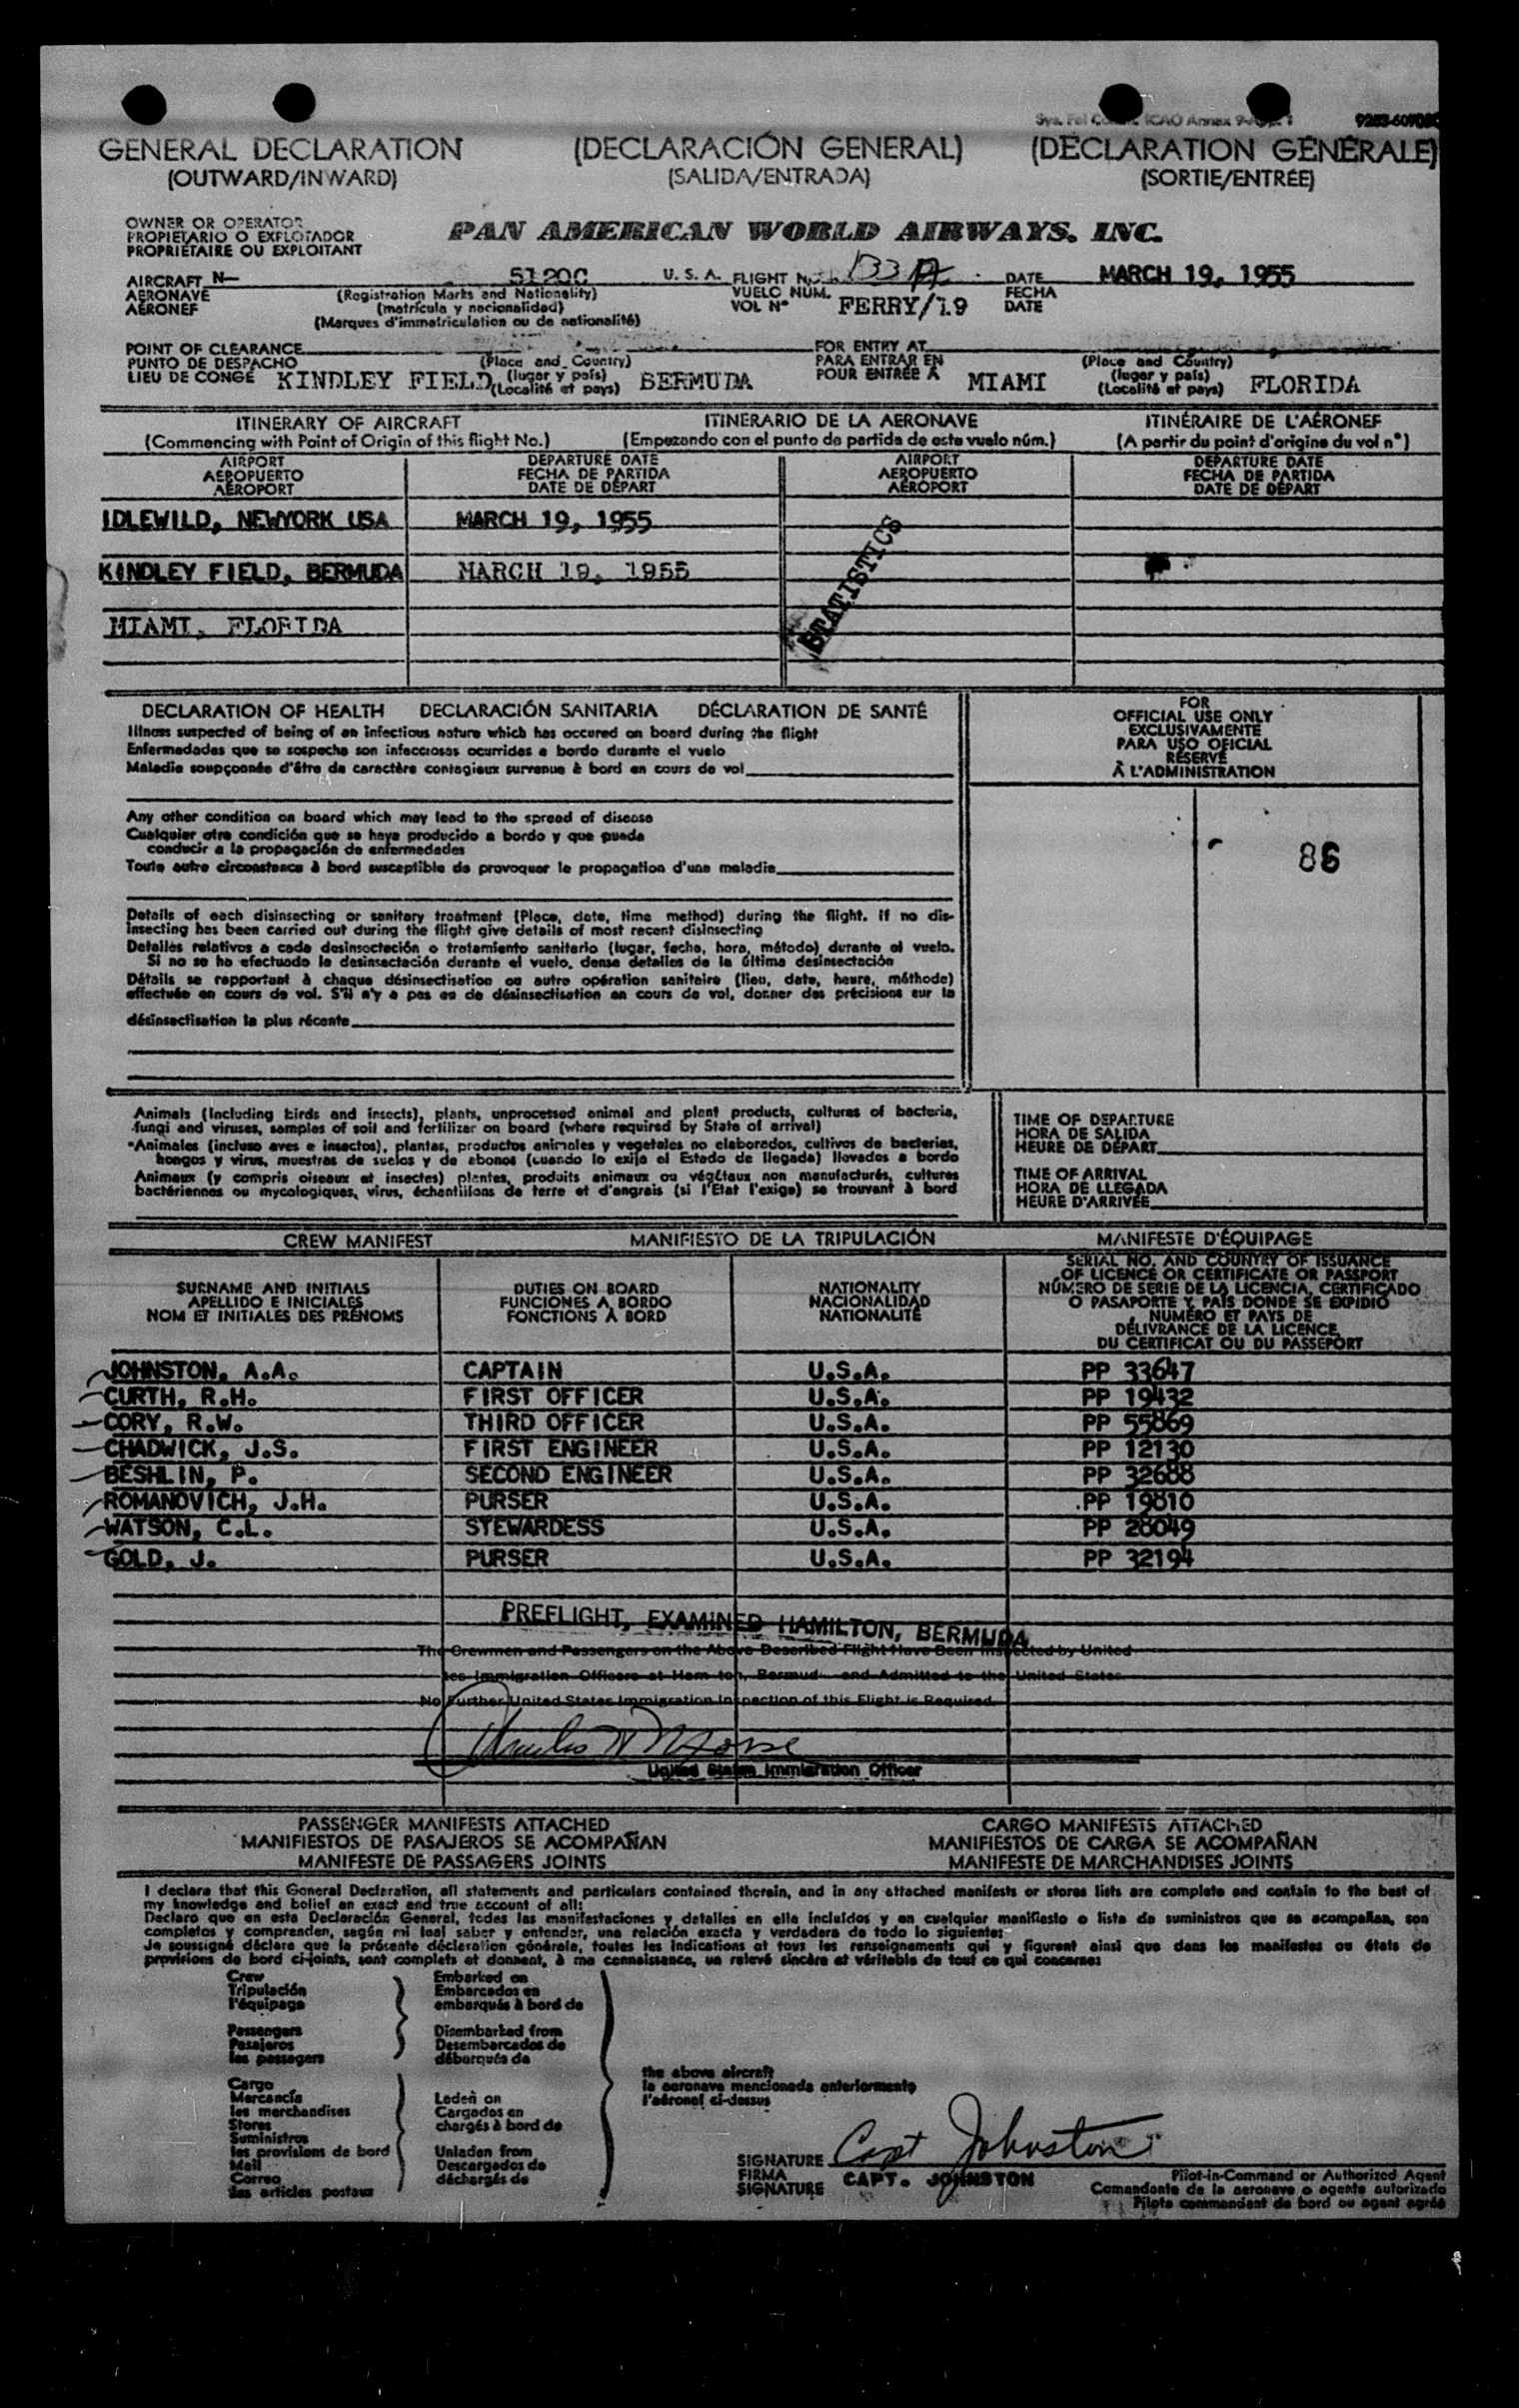 GENERAL DECLARATION (DECLARACIÓN GENERAL) (DÉCLARATION GÉNÉRALE)
(OUTWARD/INWARD) (SALIDA/ENTRADA) (SORTIE/ENTRÉE)
OWNER OR OPERATOR
PROPIETARIO O EXPLOTADOR
PROPRIÉTAIRE OU EXPLOITANT
PAN AMERICAN WORLD AIRWAYS, INC.
AIRCRAFT N- 5120C U. S. A. FLIGHT NO. DATE MARCH 19, 1955
AERONAVE (Registration Marks and Nationality) VUELO NÚM. FECHA
AÉRONEF (matrícula y nacionalidad) VOL Nº FERRY/19 DATE
(Marques d'immatriculation ou de nationalité)
POINT OF CLEARANCE (Place and Country) FOR ENTRY AT (Place and Country)
PUNTO DE DESPACHO (lugar y país) PARA ENTRAR EN (lugar y país)
LIEU DE CONGÉ KINDLEY FIELD, (Localité et pays) BERMUDA POUR ENTRÉE À MIAMI (Localité et pays) FLORIDA
ITINERARY OF AIRCRAFT ITINERARIO DE LA AERONAVE ITINÉRAIRE DE L'AÉRONEF
(Commencing with Point of Origin of this flight No.) (Empezando con el punto de partida de este vuelo núm.) (A partir du point d'origine du vol n°)
AIRPORT DEPARTURE DATE AIRPORT DEPARTURE DATE
AEROPUERTO FECHA DE PARTIDA AEROPUERTO FECHA DE PARTIDA
AÉROPORT DATE DE DÉPART AÉROPORT DATE DE DÉPART
IDLEWILD, NEWYORK USA MARCH 19, 1955
KINDLEY FIELD, BERMUDA MARCH 19, 1955
MIAMI, FLORIDA
STATISTICS
DECLARATION OF HEALTH DECLARACIÓN SANITARIA DÉCLARATION DE SANTÉ
Illness suspected of being of an infectious nature which has occured on board during the flight
Enfermedades que se sospecha son infecciosas ocurridas a bordo durante el vuelo
Maladie soupçonnée d'être de caractère contagieux survenue à bord en cours de vol
Any other condition on board which may lead to the spread of disease
Cualquier otra condición que se haya producido a bordo y que pueda
conducir a la propagación de enfermedades
Toute autre circonstance à bord susceptible de provoquer la propagation d'une maladie
Details of each disinsecting or sanitary treatment (Place, date, time method) during the flight. If no dis-
insecting has been carried out during the flight give details of most recent disinsecting
Detalles relativos a cada desinsectación o tratamiento sanitario (lugar, fecha, hora, método) durante el vuelo.
Si no se ha efectuado la desinsectación durante el vuelo, dense detalles de la última desinsectación
Détails se rapportant à chaque désinsectisation ou autre opération sanitaire (lieu, date, heure, méthode)
effectuée en cours de vol. S'il n'y a pas eu de désinsectisation en cours de vol, donner des précisions sur la
désinsectisation la plus récente
FOR
OFFICIAL USE ONLY
EXCLUSIVAMENTE
PARA USO OFICIAL
RÉSERVÉ
À L'ADMINISTRATION
86
Animals (Including birds and insects), plants, unprocessed animal and plant products, cultures of bacteria,
fungi and viruses, samples of soil and fertilizer on board (where required by State of arrival)
Animales (incluso aves e insectos), plantas, productos animales y vegetales no elaborados, cultivos de bacterias,
hongos y virus, muestras de suelos y de abonos (cuando lo exija el Estado de llegada) llevados a bordo
Animaux (y compris oiseaux et insectes) plantes, produits animaux ou végétaux non manufacturés, cultures
bactériennes ou mycologiques, virus, échantillons de terre et d'engrais (si l'Etat l'exige) se trouvant à bord
TIME OF DEPARTURE
HORA DE SALIDA
HEURE DE DÉPART
TIME OF ARRIVAL
HORA DE LLEGADA
HEURE D'ARRIVÉE
CREW MANIFEST MANIFIESTO DE LA TRIPULACIÓN MANIFESTE D'ÉQUIPAGE
SURNAME AND INITIALS
APELLIDO E INICIALES
NOM ET INITIALES DES PRÉNOMS
DUTIES ON BOARD
FUNCIONES A BORDO
FONCTIONS À BORD
NATIONALITY
NACIONALIDAD
NATIONALITÉ
SERIAL NO. AND COUNTRY OF ISSUANCE
OF LICENCE OR CERTIFICATE OR PASSPORT
NÚMERO DE SERIE DE LA LICENCIA, CERTIFICADO
O PASAPORTE Y PAÍS DONDE SE EXPIDIÓ
NUMÉRO ET PAYS DE
DÉLIVRANCE DE LA LICENCE,
DU CERTIFICAT OU DU PASSEPORT
JOHNSTON, A.A. CAPTAIN U.S.A. PP 33647
CURTH, R.H. FIRST OFFICER U.S.A. PP 19432
CORY, R.W. THIRD OFFICER U.S.A. PP 55869
CHADWICK, J.S. FIRST ENGINEER U.S.A. PP 12130
BESHLIN, P. SECOND ENGINEER U.S.A. PP 32688
ROMANOVICH, J.H. PURSER U.S.A. PP 19810
WATSON, C.L. STEWARDESS U.S.A. PP 28049
GOLD, J. PURSER U.S.A. PP 32194
PREFLIGHT, EXAMINED HAMILTON, BERMUDA
The Crewmen and Passengers on the Above Described Flight Have Been Inspected by United
Immigration Officers at and Admitted to the United States
No Further United States Immigration Inspection of this Flight is Required.
United States Immigration Officer
PASSENGER MANIFESTS ATTACHED CARGO MANIFESTS ATTACHED
MANIFIESTOS DE PASAJEROS SE ACOMPAÑAN MANIFIESTOS DE CARGA SE ACOMPAÑAN
MANIFESTE DE PASSAGERS JOINTS MANIFESTE DE MARCHANDISES JOINTS
I declare that this General Declaration, all statements and particulars contained therein, and in any attached manifests or stores lists are complete and contain to the best of
my knowledge and belief an exact and true account of all:
Declaro que en esta Declaración General, todas las manifestaciones y detalles en ella incluídos y en cualquier manifiesto o lista de suministros que se acompañan, son
completos y comprenden, según mi leal saber y entender, una relación exacta y verdadera de todo lo siguiente:
Je soussigné déclare que la présente déclaration générale, toutes les indications et tous les renseignements qui y figurent ainsi que dans les manifestes ou états de
provisions de bord ci-joints, sont complets et donnent, à ma connaissance, un relevé sincère et véritable de tout ce qui concerne:
Crew Embarked on
Tripulación Embarcados en
l'équipage embarqués à bord de
Passengers Disembarked from
Pasajeros Desembarcados de
les passagers débarqués de
the above aircraft
la aeronave mencionada anteriormente
l'aéronef ci-dessus
Cargo
Mercancía Laden on
les marchandises Cargados en
Stores chargés à bord de
Suministros
les provisions de bord Unladen from
Mail Descargados de
Correo déchargés de
les articles postaux
SIGNATURE Capt Johnston
FIRMA CAPT. JOHNSTON
SIGNATURE
Pilot-in-Command or Authorized Agent
Comandante de la aeronave o agente autorizado
Pilote commandant de bord ou agent agréé